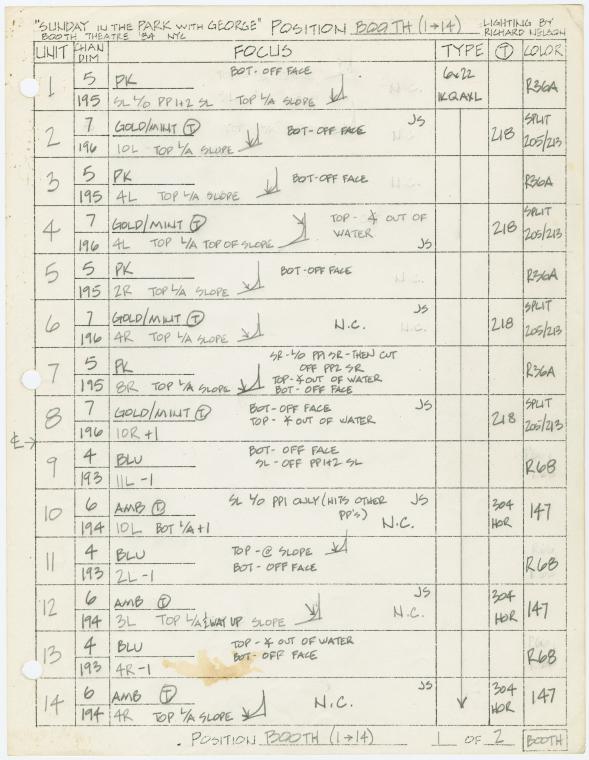 "SUNDAY IN THE PARK WITH GEORGE" POSITION BOOTH (1→14) LIGHTING BY
BOOTH THEATRE '84 NYC RICHARD NELSON
UNIT CHAN DIM FOCUS TYPE Ⓣ COLOR
1 5 PK BOT-OFF FACE 6x22 R36A
195 SL L/O PP1+2 SL TOP L/A SLOPE 1KQAXL
2 7 GOLD/MINT Ⓣ BOT-OFF FACE JS 218 SPLIT
196 10L TOP L/A SLOPE 205/213
3 5 PK BOT-OFF FACE R36A
195 4L TOP L/A SLOPE
4 7 GOLD/MINT Ⓣ TOP- ∗ OUT OF WATER 218 SPLIT
196 4L TOP L/A TOP OF SLOPE JS 205/213
5 5 PK BOT-OFF FACE R36A
195 2R TOP L/A SLOPE
6 7 GOLD/MINT Ⓣ N.C. JS 218 SPLIT
196 4R TOP L/A SLOPE 205/213
7 5 PK SR-L/O PP1 SR-THEN CUT
OFF PP2 SR R36A
195 8R TOP L/A SLOPE TOP-∗ OUT OF WATER
BOT-OFF FACE
8 7 GOLD/MINT Ⓣ BOT-OFF FACE JS 218 SPLIT
TOP-∗ OUT OF WATER 205/213
196 10R +1
℄→
9 4 BLU BOT-OFF FACE R68
SL-OFF PP1+2 SL
193 11L -1
10 6 AMB Ⓣ SL L/O PP1 ONLY (HITS OTHER PP'S) JS 304 147
194 10L BOT L/A+1 N.C. HOR
11 4 BLU TOP-@ SLOPE R68
193 2L -1 BOT-OFF FACE
12 6 AMB Ⓣ JS 304 147
194 3L TOP L/A & WAY UP SLOPE N.C. HOR
13 4 BLU TOP-∗ OUT OF WATER R68
193 4R -1 BOT-OFF FACE
14 6 AMB Ⓣ N.C. JS 304 147
194 4R TOP L/A SLOPE HOR
POSITION BOOTH (1→14) 1 OF 2 BOOTH